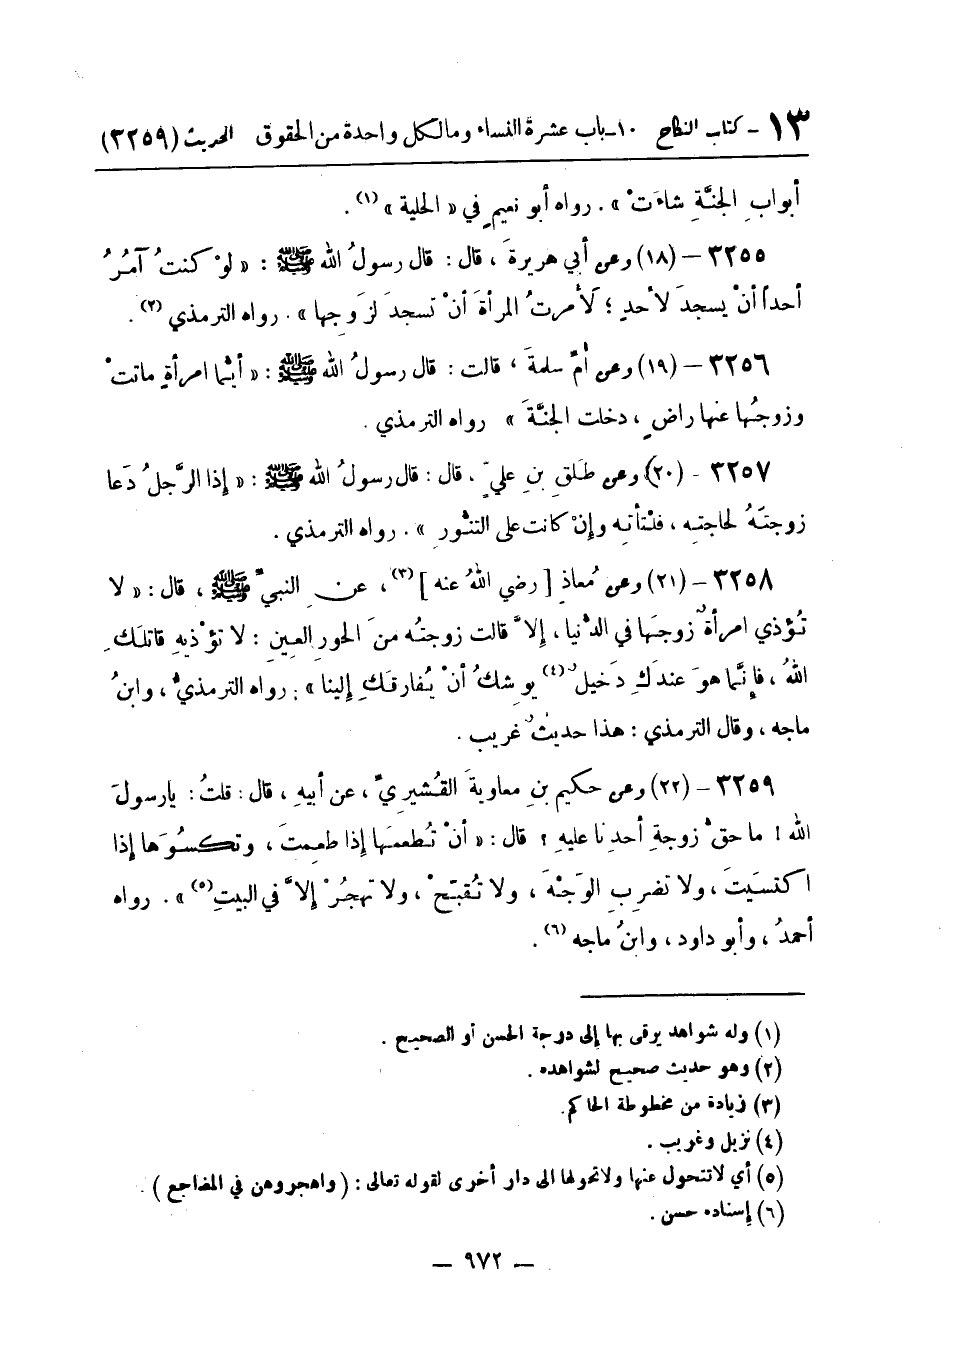 ١٣ - كتاب النكاح ١٠- باب عشرة النساء وما لكل واحدة من الحقوق الحديث (٣٢٥٩)
أبوابِ الجنَّةِ شاءَتْ » . رواه أبو نعيمٍ في « الحلية » (١) .
٣٢٥٥ - (١٨) وعن أبي هريرةَ ، قال : قال رسولُ الله ﷺ : « لوْ كنتُ آمُرُ
أحداً أنْ يسجدَ لأحدٍ ؛ لأمرتُ المرأةَ أنْ تسجدَ لزَوجِها » . رواه الترمذي (٢) .
٣٢٥٦ - (١٩) وعن أمِّ سلمةَ ، قالت : قال رسولُ الله ﷺ : « أيُّما امرأةٍ ماتتْ
وزوجُها عنها راضٍ ، دخلت الجنَّةَ » رواه الترمذي .
٣٢٥٧ - (٢٠) وعن طَلَقِ بنِ عليٍّ ، قال : قال رسولُ الله ﷺ : « إذا الرَّجلُ دَعا
زوجتَهُ لحاجتِه ، فلْتأتِه وإنْ كانت على التنُّورِ » . رواه الترمذي .
٣٢٥٨ - (٢١) وعن مُعاذٍ [ رضي اللهُ عنه ] (٣) ، عنِ النبيِّ ﷺ ، قال : « لا
تُؤذي امرأةٌ زوجَها في الدُّنيا ، إلاَّ قالت زوجتُه منَ الحورِ العِينِ : لا تؤْذيهِ قاتلَكِ
اللهُ ، فإنَّما هوَ عندَكِ دَخيلٌ (٤) يوشكُ أنْ يُفارقَكِ إلينا » . رواه الترمذيُّ ، وابنُ
ماجه ، وقال الترمذي : هذا حديثٌ غريب .
٣٢٥٩ - (٢٢) وعن حكيمِ بنِ معاويةَ القُشيريِّ ، عن أبيهِ ، قال : قلتُ : يارسولَ
الله ! ما حقُّ زوجةِ أحدِنا عليهِ ؟ قال : « أنْ تُطعمَها إذا طعِمتَ ، وتكسُوَها إذا
اكتسَيتَ ، ولا تضرِبِ الوَجْهَ ، ولا تُقبِّحْ ، ولا تهجُرْ إلاَّ في البيتِ (٥) » . رواه
أحمدُ ، وأبو داود ، وابنُ ماجه (٦) .
(١) وله شواهد يرقى بها إلى درجة الحسن أو الصحيح .
(٢) وهو حديث صحيح لشواهده .
(٣) زيادة من مخطوطة الحاكم.
(٤) نزيل وغريب .
(٥) أي لاتتحول عنها ولاتحولها الى دار أخرى لقوله تعالى : ( واهجروهن في المضاجع ) .
(٦) إسناده حسن .
— ٩٧٢ —